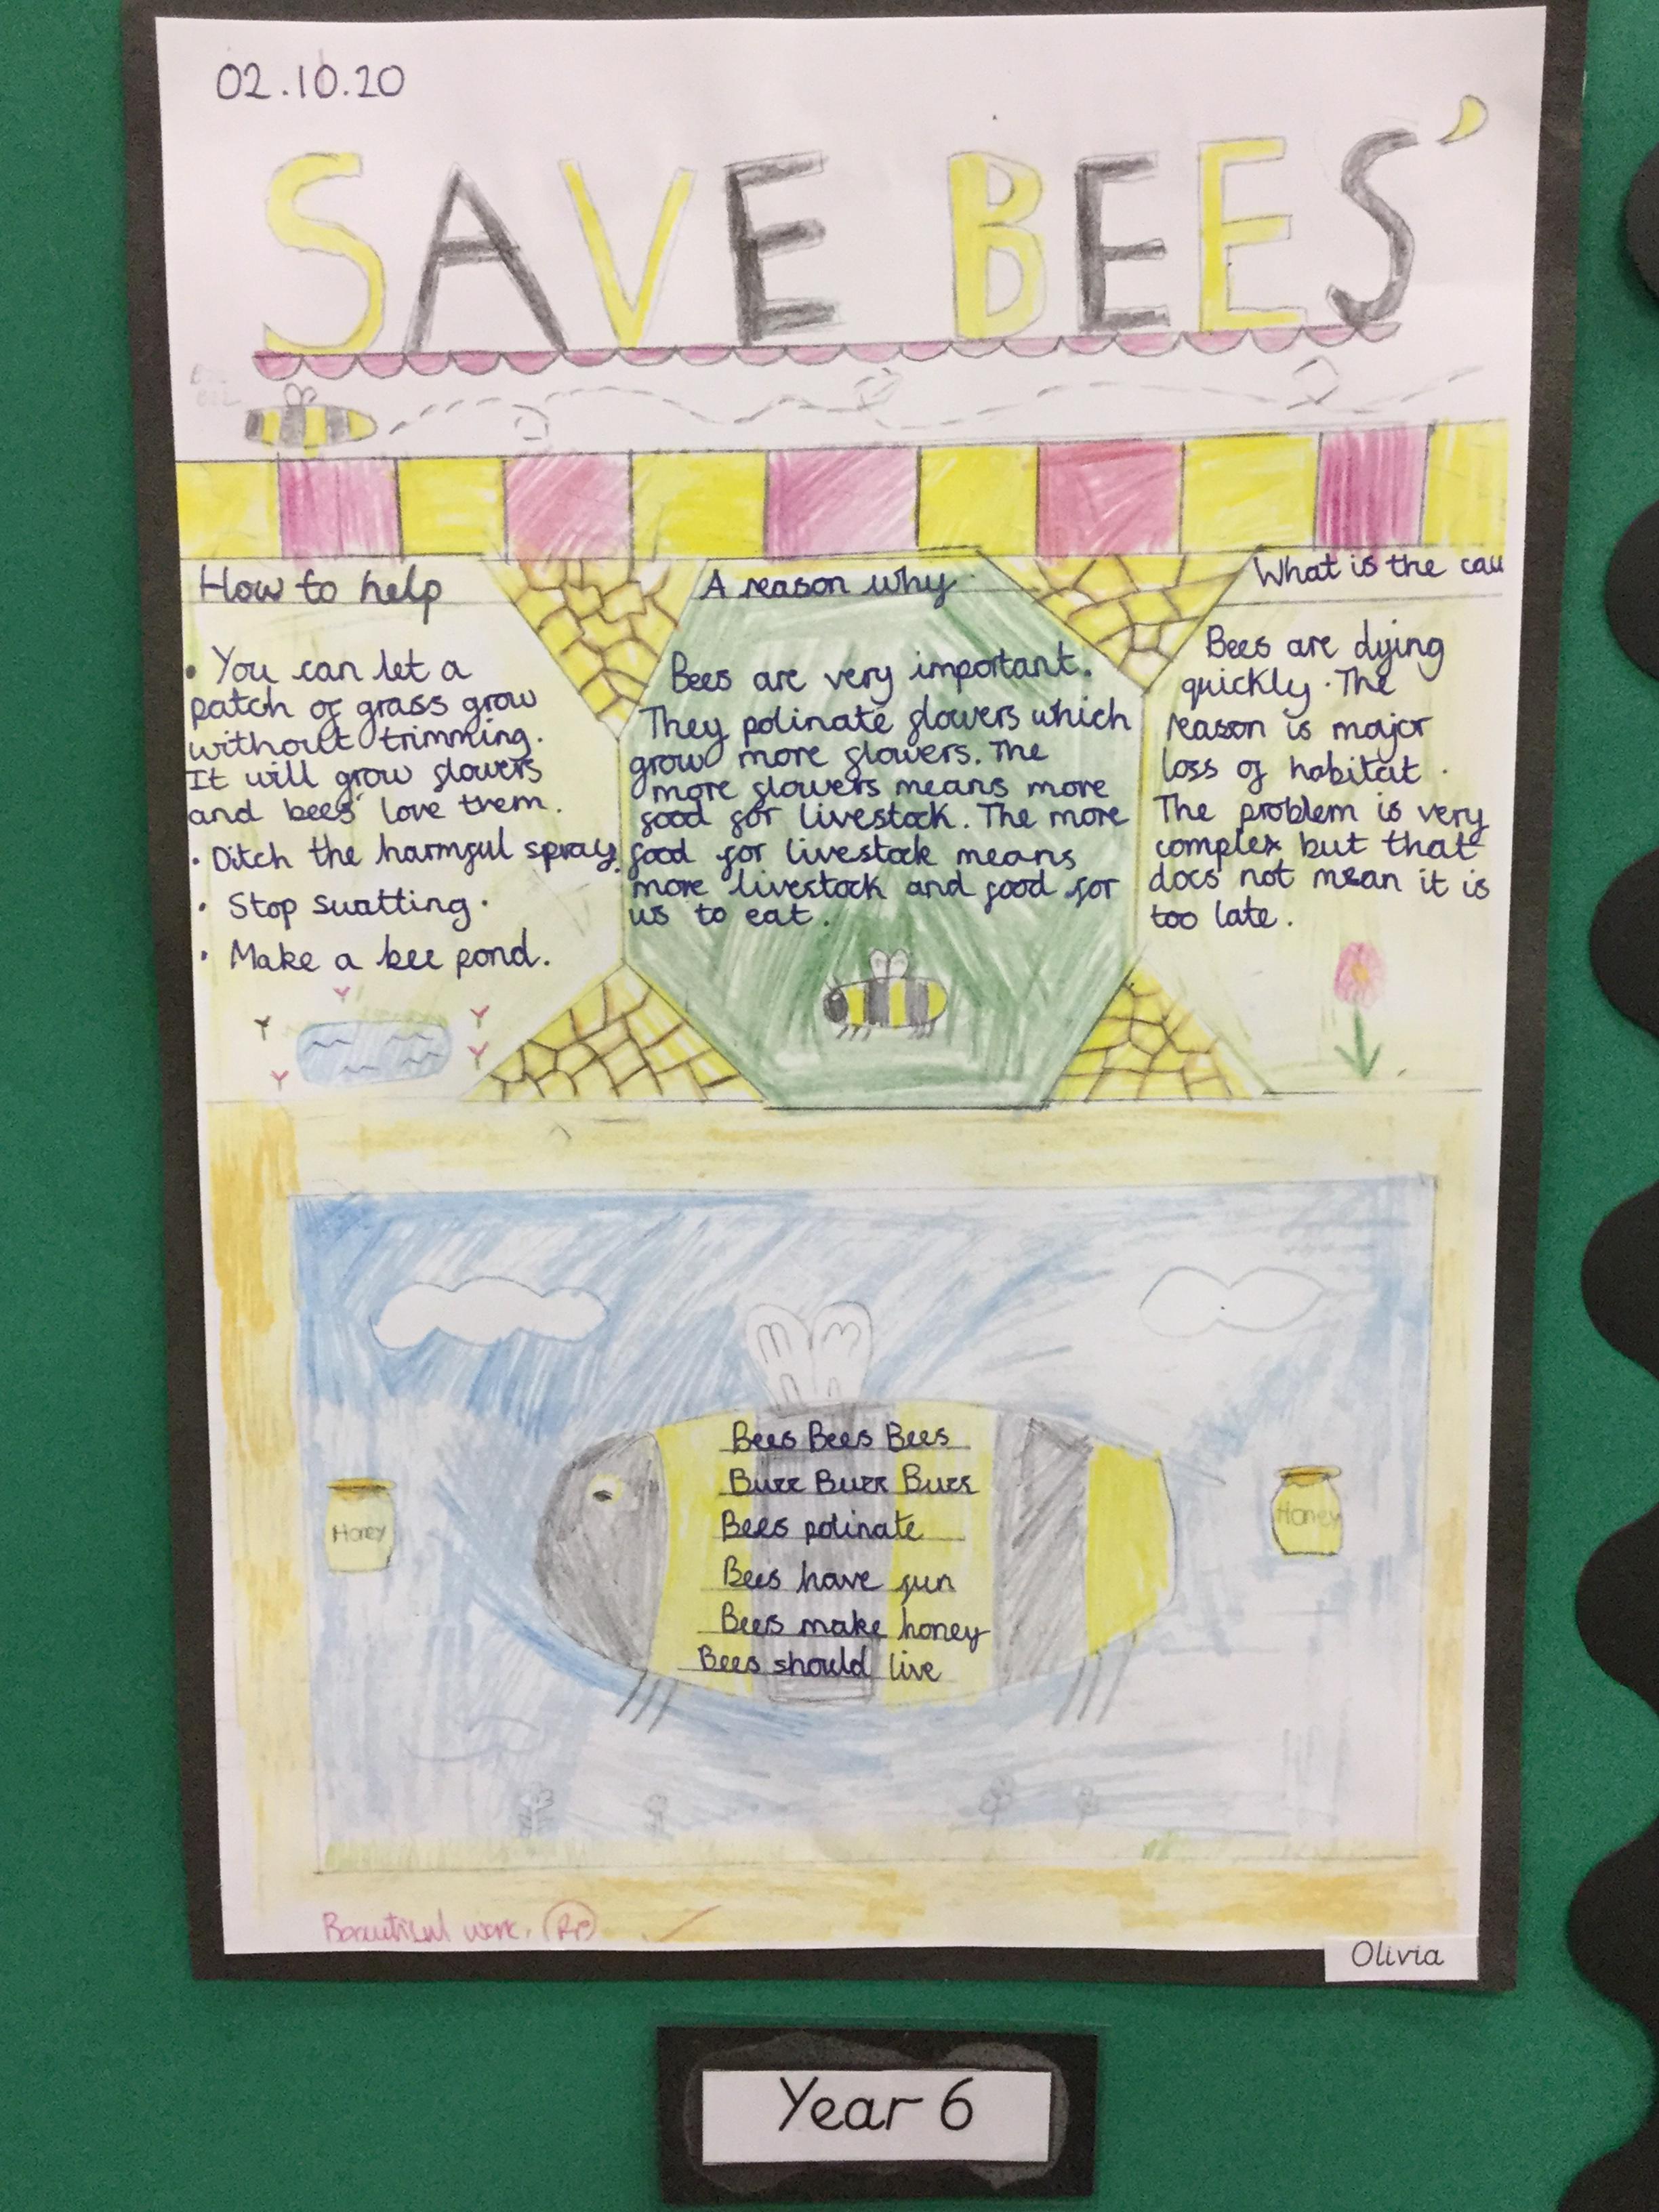 02.10.20
SAVE BEES'
How to help
• You can let a
patch of grass grow
without trimming.
It will grow flowers
and bees' love them.
• Ditch the harmful spray.
• Stop swatting.
• Make a bee pond.
A reason why
Bees are very important.
They polinate flowers which
grow more flowers. The
more flowers means more
food for livestock. The more
food for livestock means
more livestock and food for
us to eat.
What is the cau
Bees are dying
quickly. The
reason is major
loss of habitat.
The problem is very
complex but that
does not mean it is
too late.
Bees Bees Bees
Buzz Buzz Buzz
Bees polinate
Bees have fun
Bees make honey
Bees should live
Honey
Honey
Beautiful work.
Olivia
Year 6